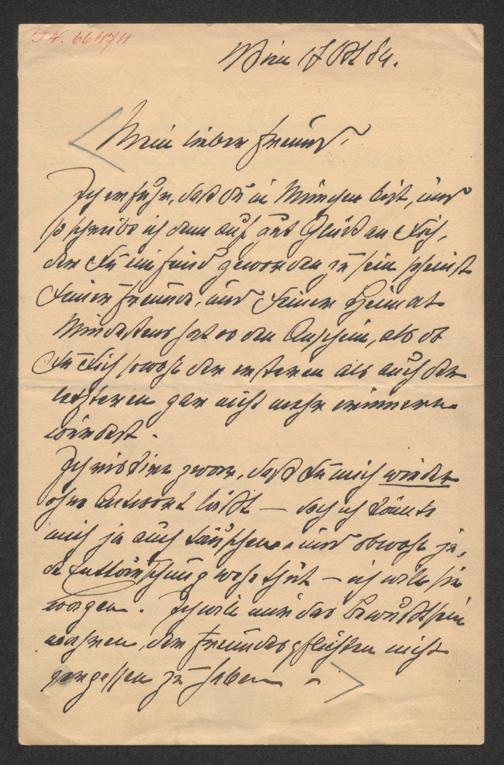 I.N. 66474
Wien 17 Okt 84.
Mein lieber Freund!
Ich erfuhr, daß Du in München bist, und
so schreibe ich denn auf gut Glück an Dich,
der Du ein Feind geworden zu sein scheinst
Deiner Freunde, und Deiner Heimat
Mindestens hat es den Anschein, als ob
Du Dich sowohl der ersteren als auch der
letzteren gar nicht mehr erinnern
würdest.
Ich riskire zwar, daß Du mich wieder
ohne Antwort läßt — doch ich könnte
mich ja auch täuschen, und obwohl ja,
die Enttäuschung wehe thut — ich will sie
wagen. Ich will mir das Bewußtsein
wahren, der Freundespflichten nicht
vergessen zu haben —